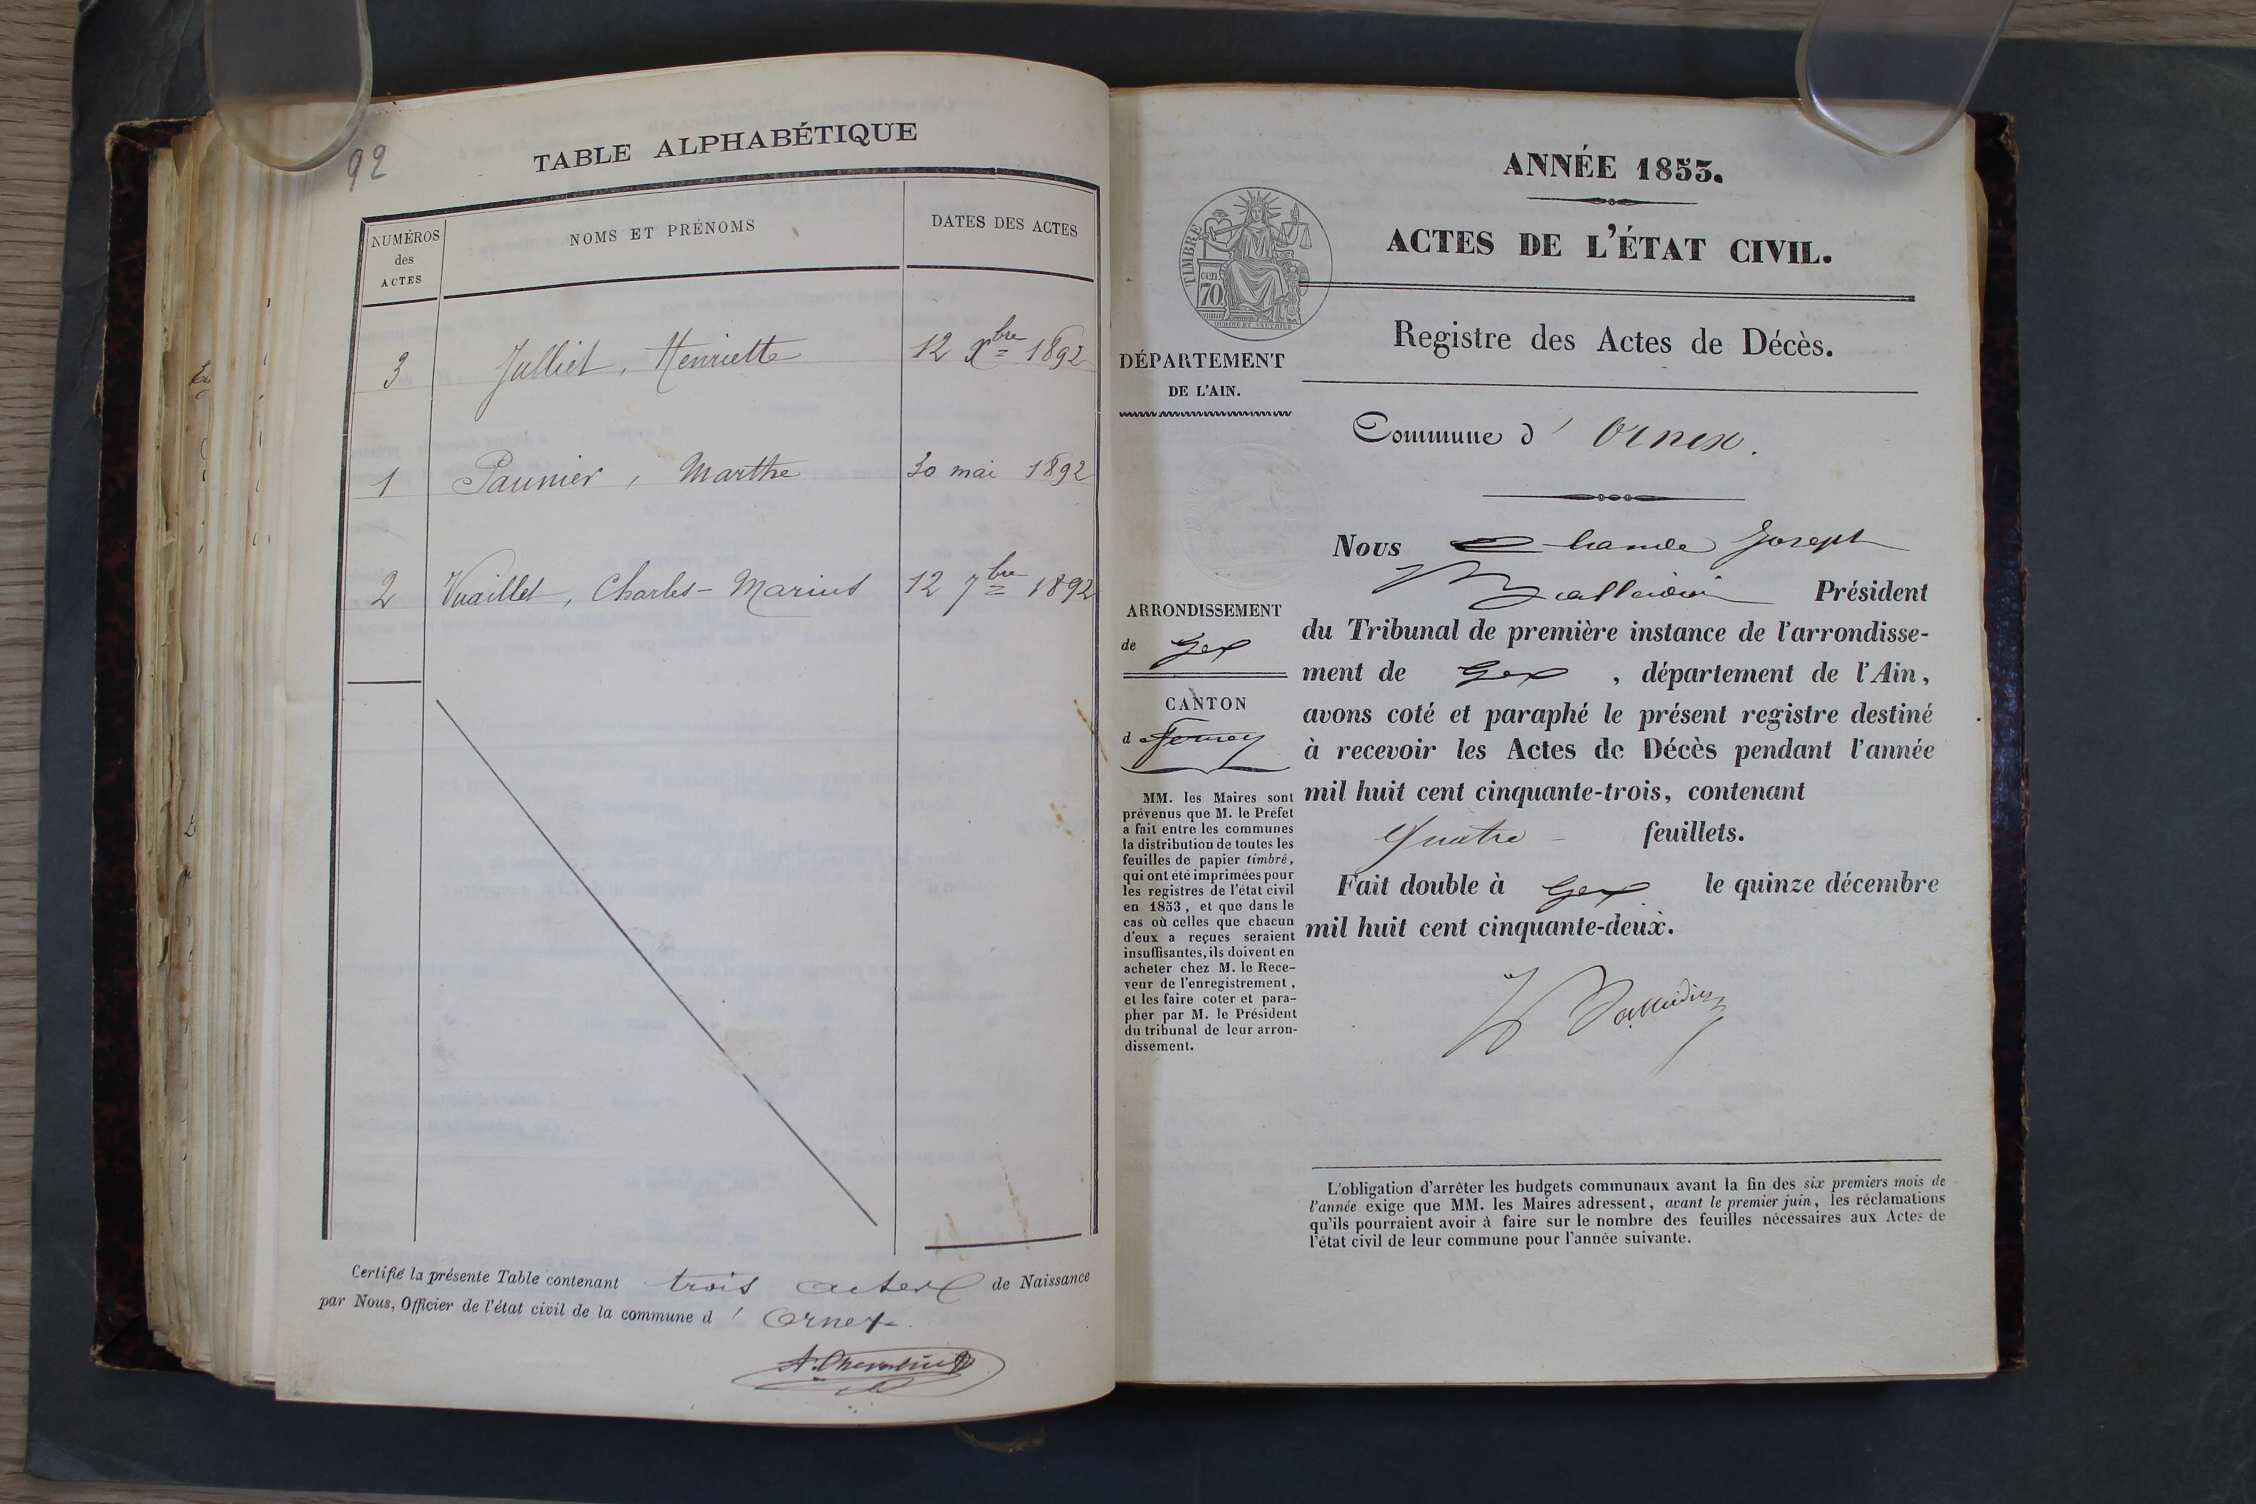 92
TABLE ALPHABÉTIQUE
NUMÉROS
des
ACTES
NOMS ET PRÉNOMS
DATES DES ACTES
3 Julliet, Henriette 12 Xbre 1892
1 Paunier, Marthe 30 mai 1892
2 Vuaillet, Charles-Marius 12 7bre 1892
Certifié la présente Table contenant trois actes de Naissance
par Nous, Officier de l'état civil de la commune d' Ornex.
ANNÉE 1853.
ACTES DE L'ÉTAT CIVIL.
TIMBRE
cen
70
Registre des Actes de Décès.
Commune d' Ornex.
DÉPARTEMENT
DE L'AIN.
ARRONDISSEMENT
de Gex
CANTON
de Ferney
MM. les Maires sont
prévenus que M. le Préfet
a fait entre les communes
la distribution de toutes les
feuilles de papier timbré,
qui ont été imprimées pour
les registres de l'état civil
en 1853, et que dans le
cas où celles que chacun
d'eux a reçues seraient
insuffisantes, ils doivent en
acheter chez M. le Rece-
veur de l'enregistrement,
et les faire coter et para-
pher par M. le Président
du tribunal de leur arron-
dissement.
Nous Joseph
Président
du Tribunal de première instance de l'arrondisse-
ment de Gex, département de l'Ain,
avons coté et paraphé le présent registre destiné
à recevoir les Actes de Décès pendant l'année
mil huit cent cinquante-trois, contenant
Quatre feuillets.
Fait double à Gex le quinze décembre
mil huit cent cinquante-deux.
L'obligation d'arrêter les budgets communaux avant la fin des six premiers mois de
l'année exige que MM. les Maires adressent, avant le premier juin, les réclamations
qu'ils pourraient avoir à faire sur le nombre des feuilles nécessaires aux Actes de
l'état civil de leur commune pour l'année suivante.